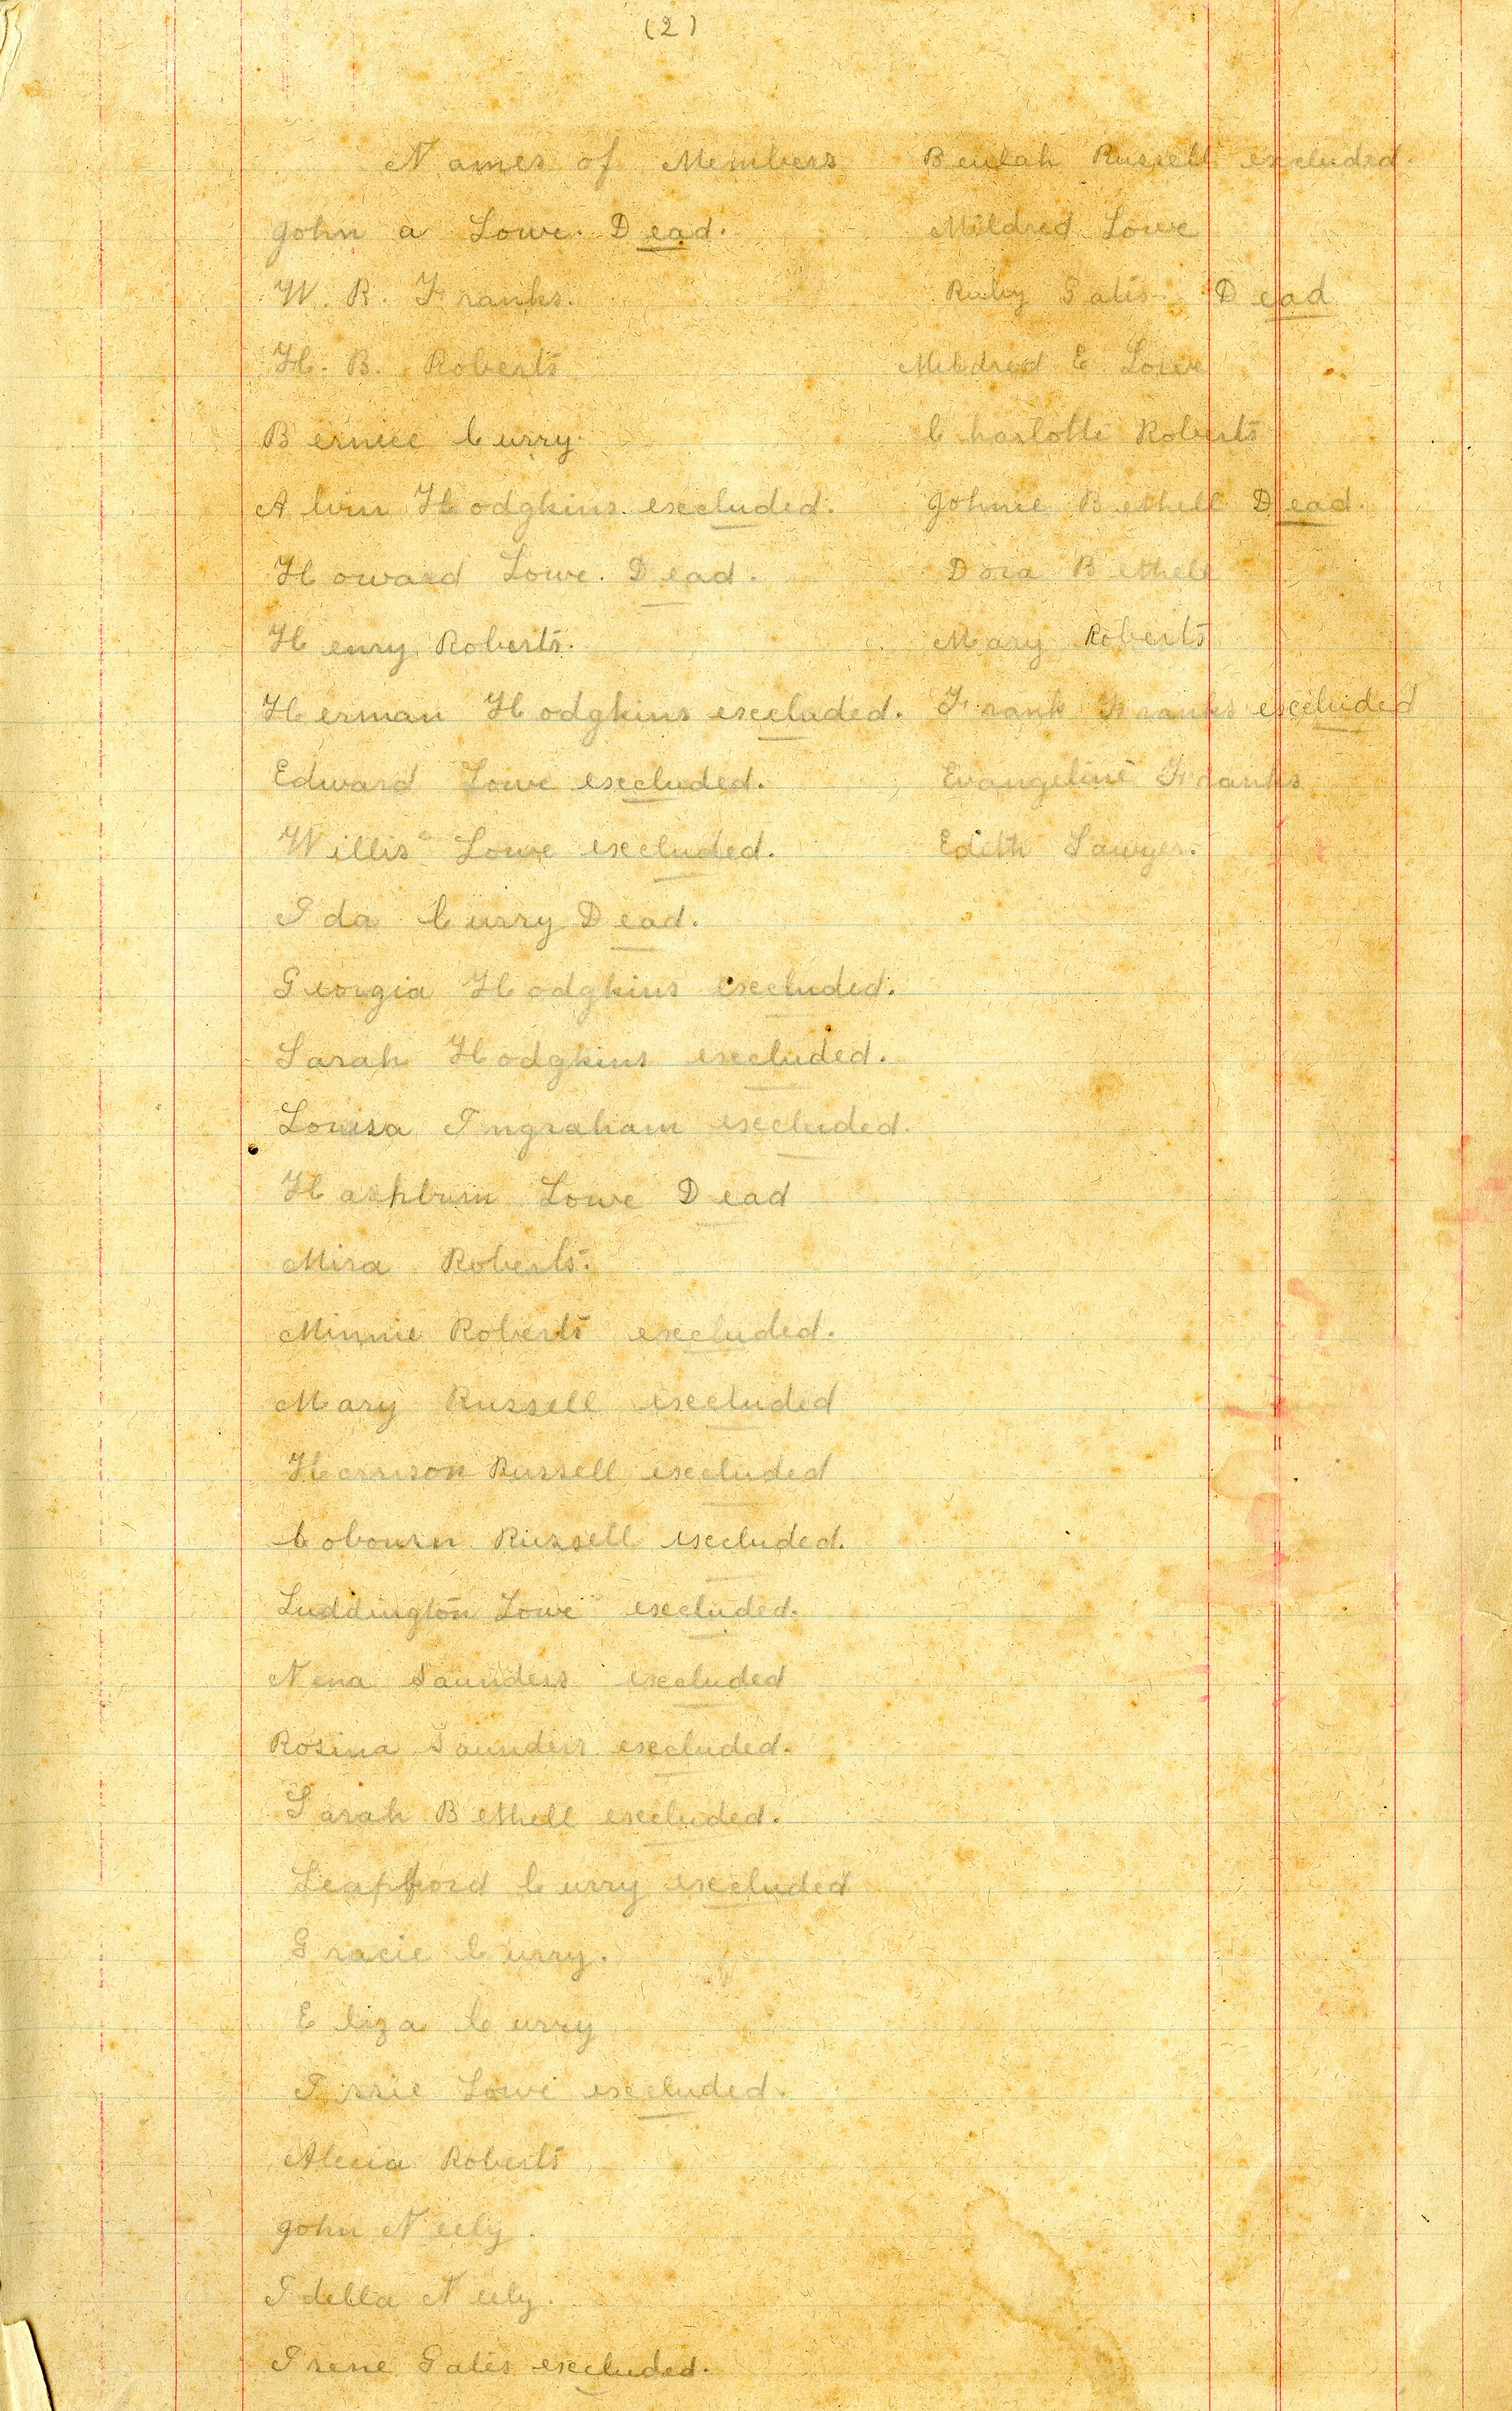 (2)
Names of Members
John a Lowe. Dead.
W. R. Franks.
H. B. Roberts
Bernice Curry.
Alvin Hodgkins. excluded.
Howard Lowe. Dead.
Henry Roberts.
Herman Hodgkins excluded.
Edward Lowe excluded.
Willis Lowe excluded.
Ida Curry Dead.
Georgia Hodgkins excluded.
Sarah Hodgkins excluded.
Louisa Ingraham excluded.
Lowe Dead
Mira Roberts.
Minnie Roberts excluded.
Mary Russell excluded
Harrison Russell excluded
Cobourn Russell excluded.
Luddington Lowe excluded.
Nena Saunders excluded
Rosina Saunders excluded.
Sarah Bethell excluded.
Curry excluded
Gracie Curry.
Eliza Curry
Issie Lowe excluded.
Alecia Roberts
John Neely.
Idella Neely.
Irene Gates excluded.
Beulah Russell excluded.
Mildred Lowe
Ruby Gates. Dead
Mildred E Lowe
Charlotte Roberts
Johnie Bethell Dead.
Dora Bethell
Mary Roberts
Frank Franks excluded
Evangeline Franks
Edith Sawyer.